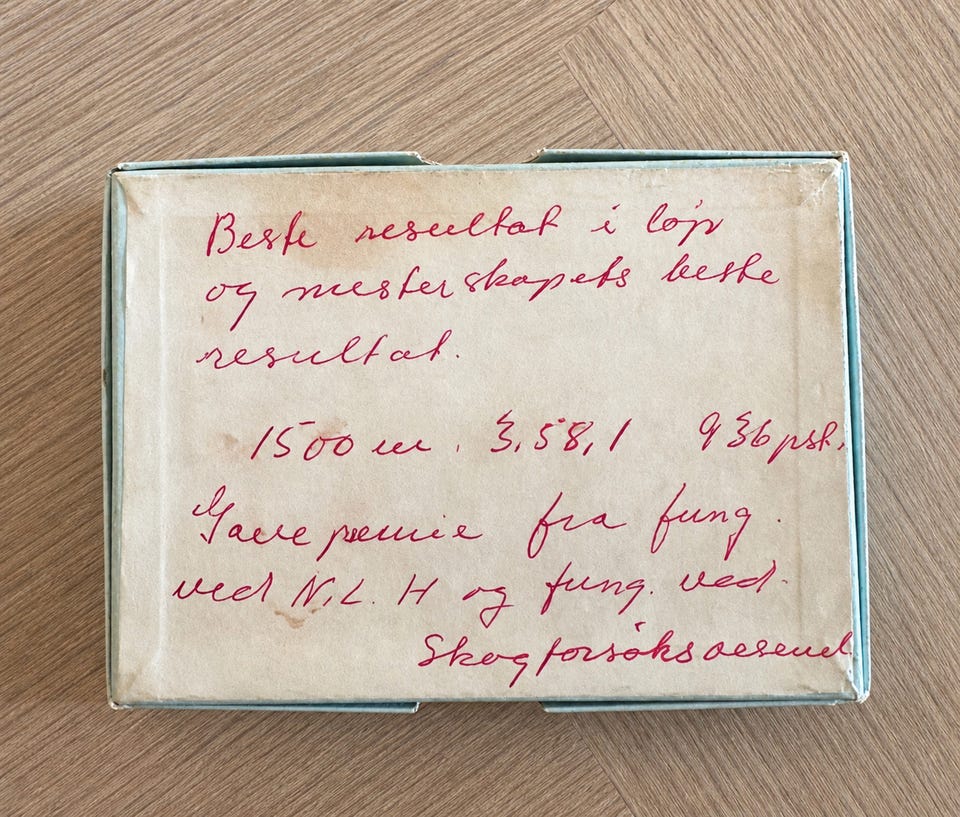 Beste resultat i løp
og mesterskapets beste
resultat.
1500 m. 3,58,1 936 psk.
Gave premie fra fung.
ved N.L.H og fung. ved
Skogforsøksvesend